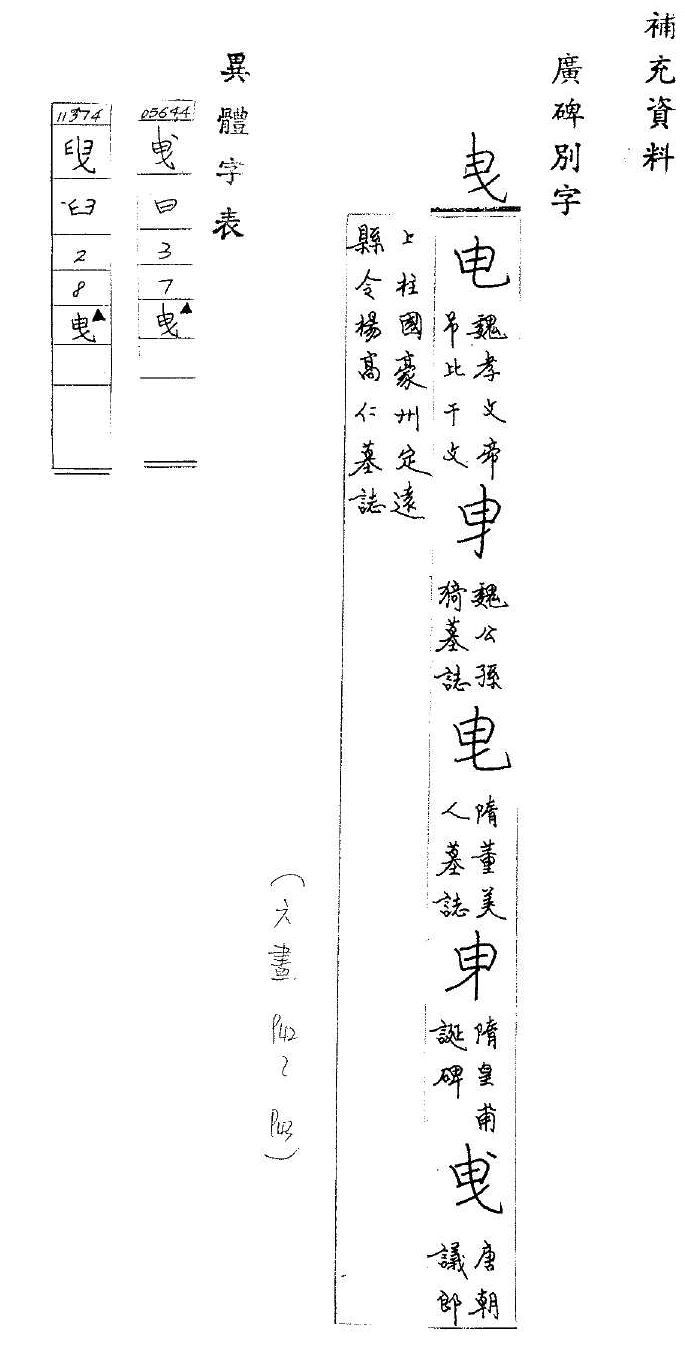 補充資料
廣碑別字
曳
电 魏孝文帝吊比干文 魏公孫猗墓誌 隋董美人墓誌 隋皇甫誕碑 曳 唐朝議郎
上柱國豪州定遠縣令楊高仁墓誌
(六畫 P42~P43)
異體字表
05644 曳 曰 3 7 曳▲
11374 臾 臼 2 8 曳▲